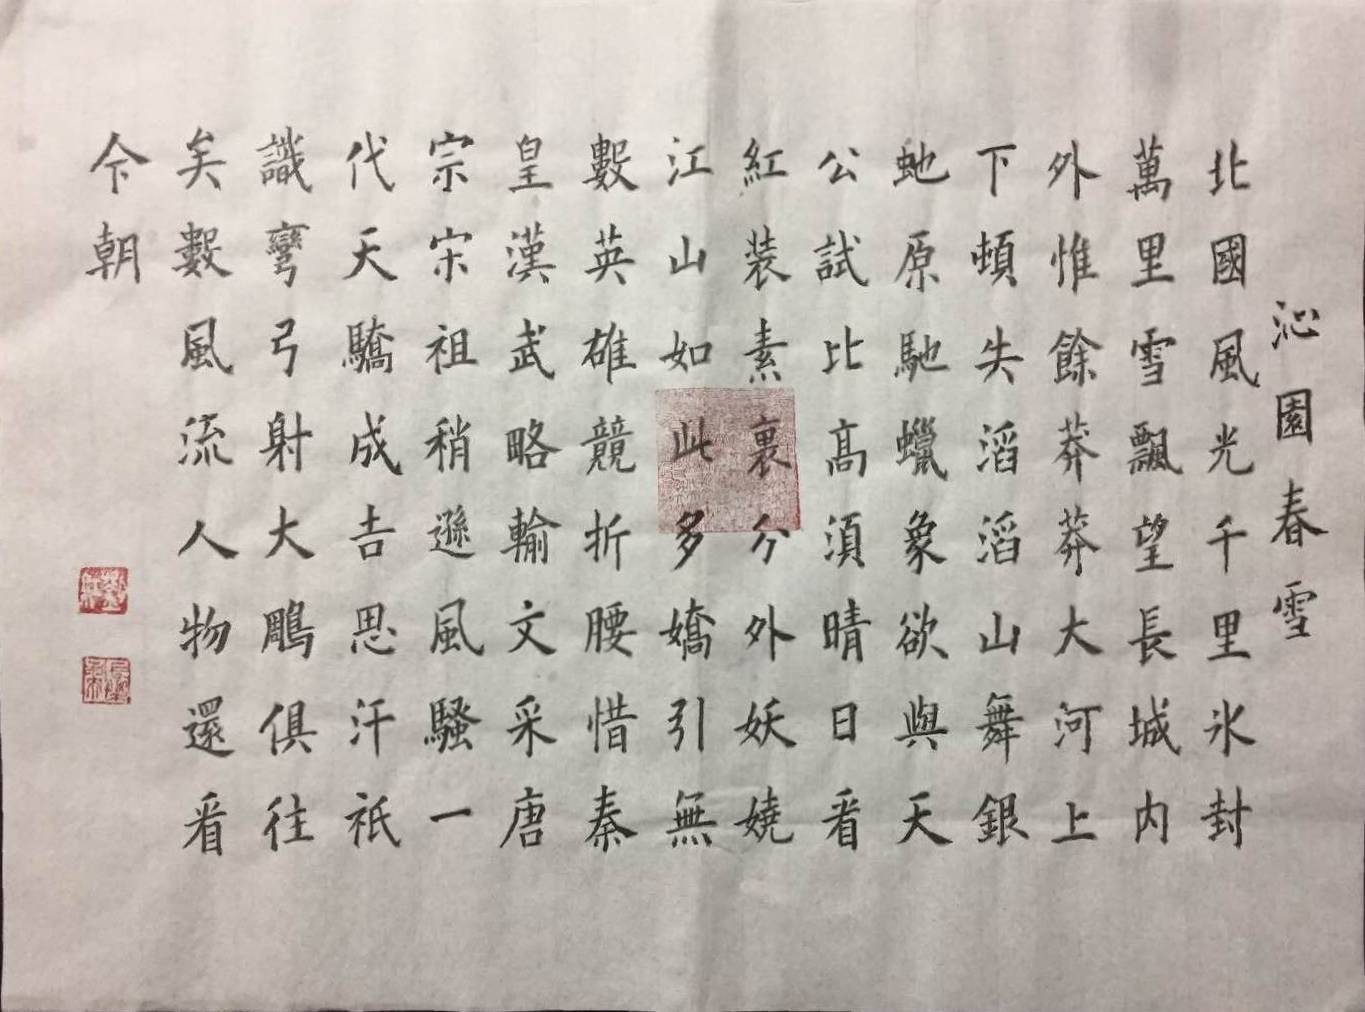 沁園春雪
北國風光千里氷封
萬里雪飄望長城内
外惟餘莽莽大河上
下頓失滔滔山舞銀
虵原馳蠟象欲與天
公試比髙須晴日看
紅裝素裏分外妖嬈
江山如此多嬌引無
數英雄競折腰惜秦
皇漢武略輸文采唐
宗宋祖稍遜風騷一
代天驕成吉思汗祇
識彎弓射大鵰俱往
矣數風流人物還看
今朝